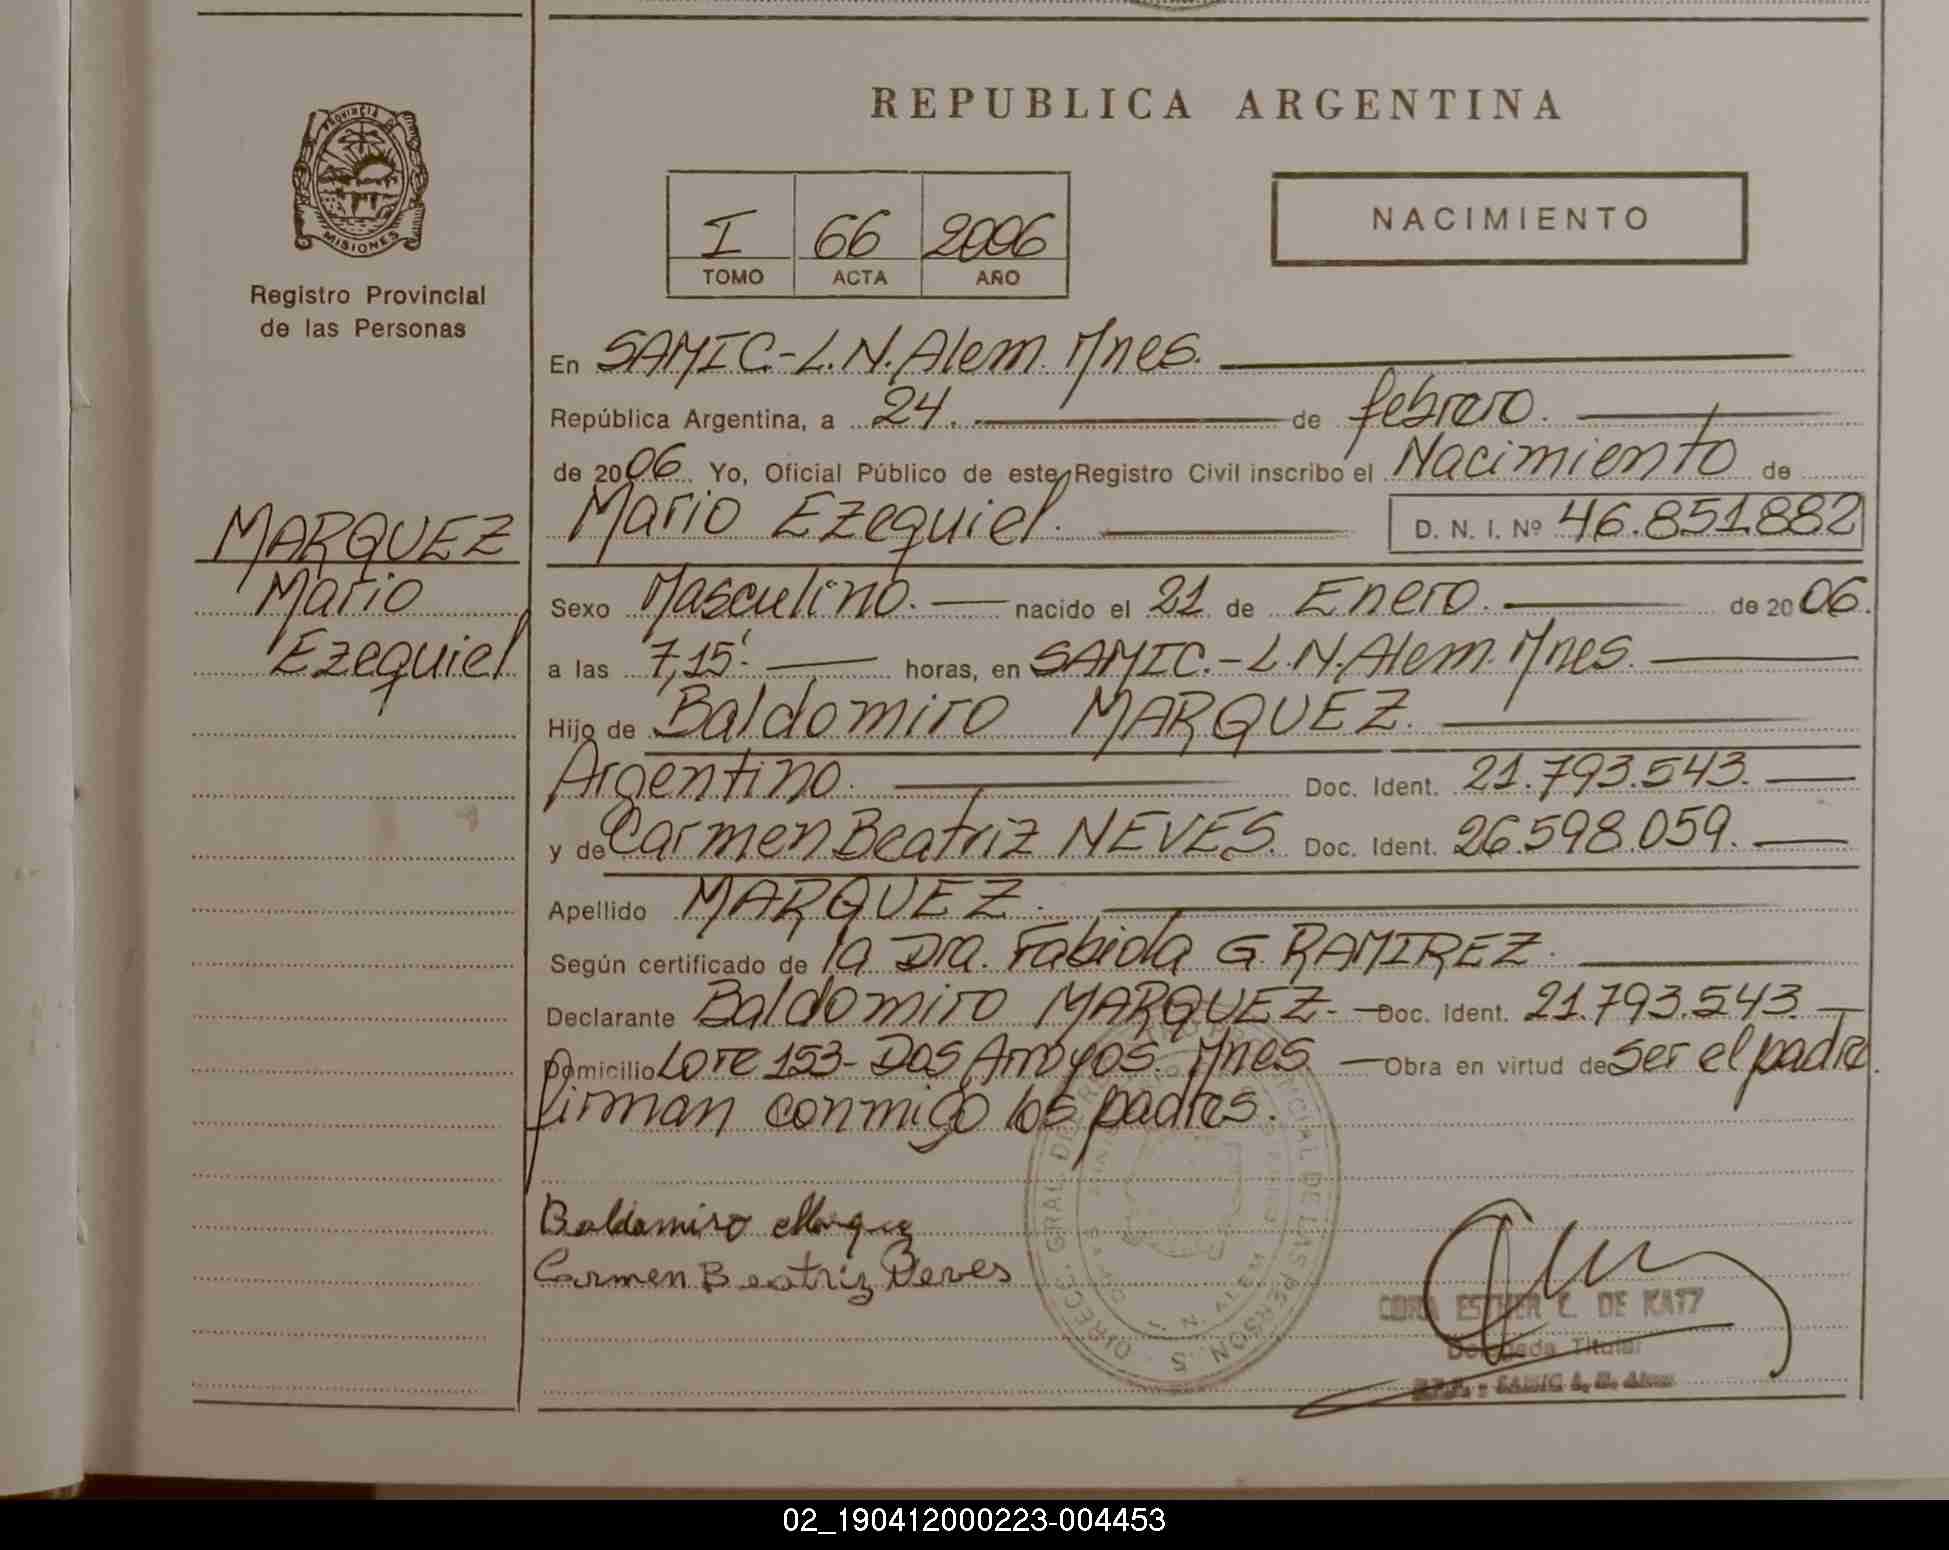 REPUBLICA ARGENTINA
PROVINCIA DE
MISIONES
Registro Provincial
de las Personas
I 66 2006
TOMO ACTA AÑO
NACIMIENTO
En SAMIC.- L.N. Alem. Mnes.
República Argentina, a 24. de febrero.
de 2006 Yo, Oficial Público de este Registro Civil inscribo el Nacimiento de
MARQUEZ
Mario
Ezequiel
Mario Ezequiel. D. N. I. Nº 46.851.882
Sexo Masculino. nacido el 21 de Enero. de 2006.
a las 7,15'. horas, en SAMIC.- L.N. Alem. Mnes.
Hijo de Baldomiro MARQUEZ.
Argentino. Doc. Ident. 21.793.543.
y de Carmen Beatriz NEVES. Doc. Ident. 26.598.059.
Apellido MARQUEZ.
Según certificado de la Dra. Fabiola G. RAMIREZ.
Declarante Baldomiro MARQUEZ.- Doc. Ident. 21.793.543.
Domicilio Lote 153- Dos Arroyos. Mnes. Obra en virtud de ser el padre.
firman conmigo los padres.
Baldomiro Marquez
Carmen Beatriz Neves
DIRECC. GRAL. DEL PROVINCIAL DE LAS PERSONAS
L. N. ALEM
ESTHER C. DE KATZ
Delegada Titular
02_190412000223-004453